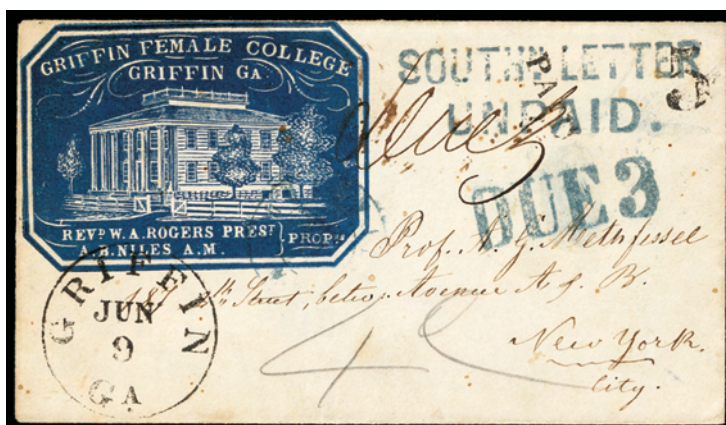 GRIFFIN FEMALE COLLEGE
GRIFFIN GA
REVD W. A. ROGERS PREST
A. B. NILES A. M.
PROPRS
SOUTHN LETTER
UNPAID.
PAID
DUE 3
due 3
Prof. A. G. Methfessel
Street, betw. Avenue A & B.
New York.
City.
GRIFFIN
JUN
9
GA